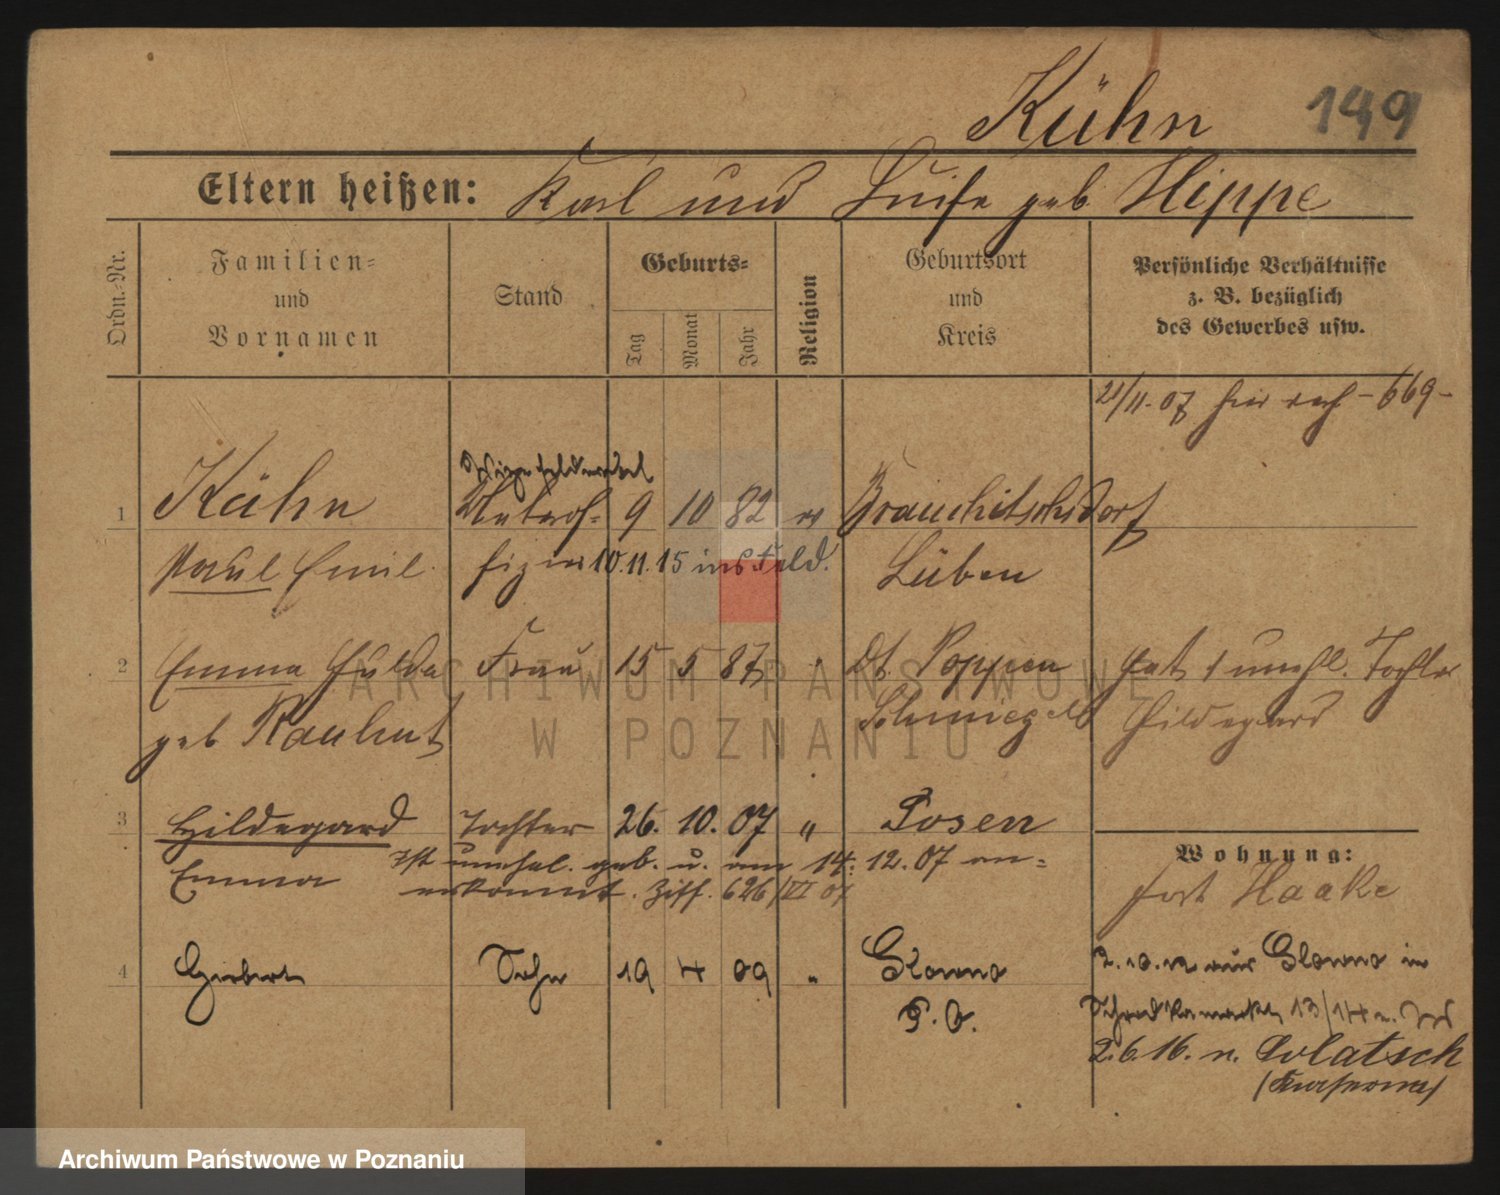 Kühn 149
Eltern heißen: Karl und Luise geb Hippe
Ordn.-Nr.
Familien-
und
Vornamen
Stand
Geburts-
Tag
Monat
Jahr
Religion
Geburtsort
und
Kreis
Persönliche Verhältnisse
z. B. bezüglich
des Gewerbes usw.
21/11.07 -669-
Vizefeldwebel
1 Kühn Unterof- 9 10 82 ev Brauchitschdorf
Paul Emil fizier 10.11.15 ins Feld. Lüben
2 Emma Hulda Frau 15 5 87 " Dt. Poppen hat 1 unehl. Tochter
geb Rauhut Schmiegel Hildegard
3 Hildegard Tochter 26. 10. 07 " Posen
Ist unehel. geb. u. am 14. 12. 07 an-
Emma erkannt. Ziff. 626/VI 07
Wohnung:
Fort Haake
4 Herbert Sohn 19 4 09 " Glowno
P. O.
2.10.12 Glowno in
13/14
2.6.16. n. Colatsch
(Kaserne)
ARCHIWUM PAŃSTWOWE
W POZNANIU
Archiwum Państwowe w Poznaniu